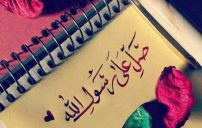 صَلِّ عَلَىٰ رَسُولِ اللّٰه